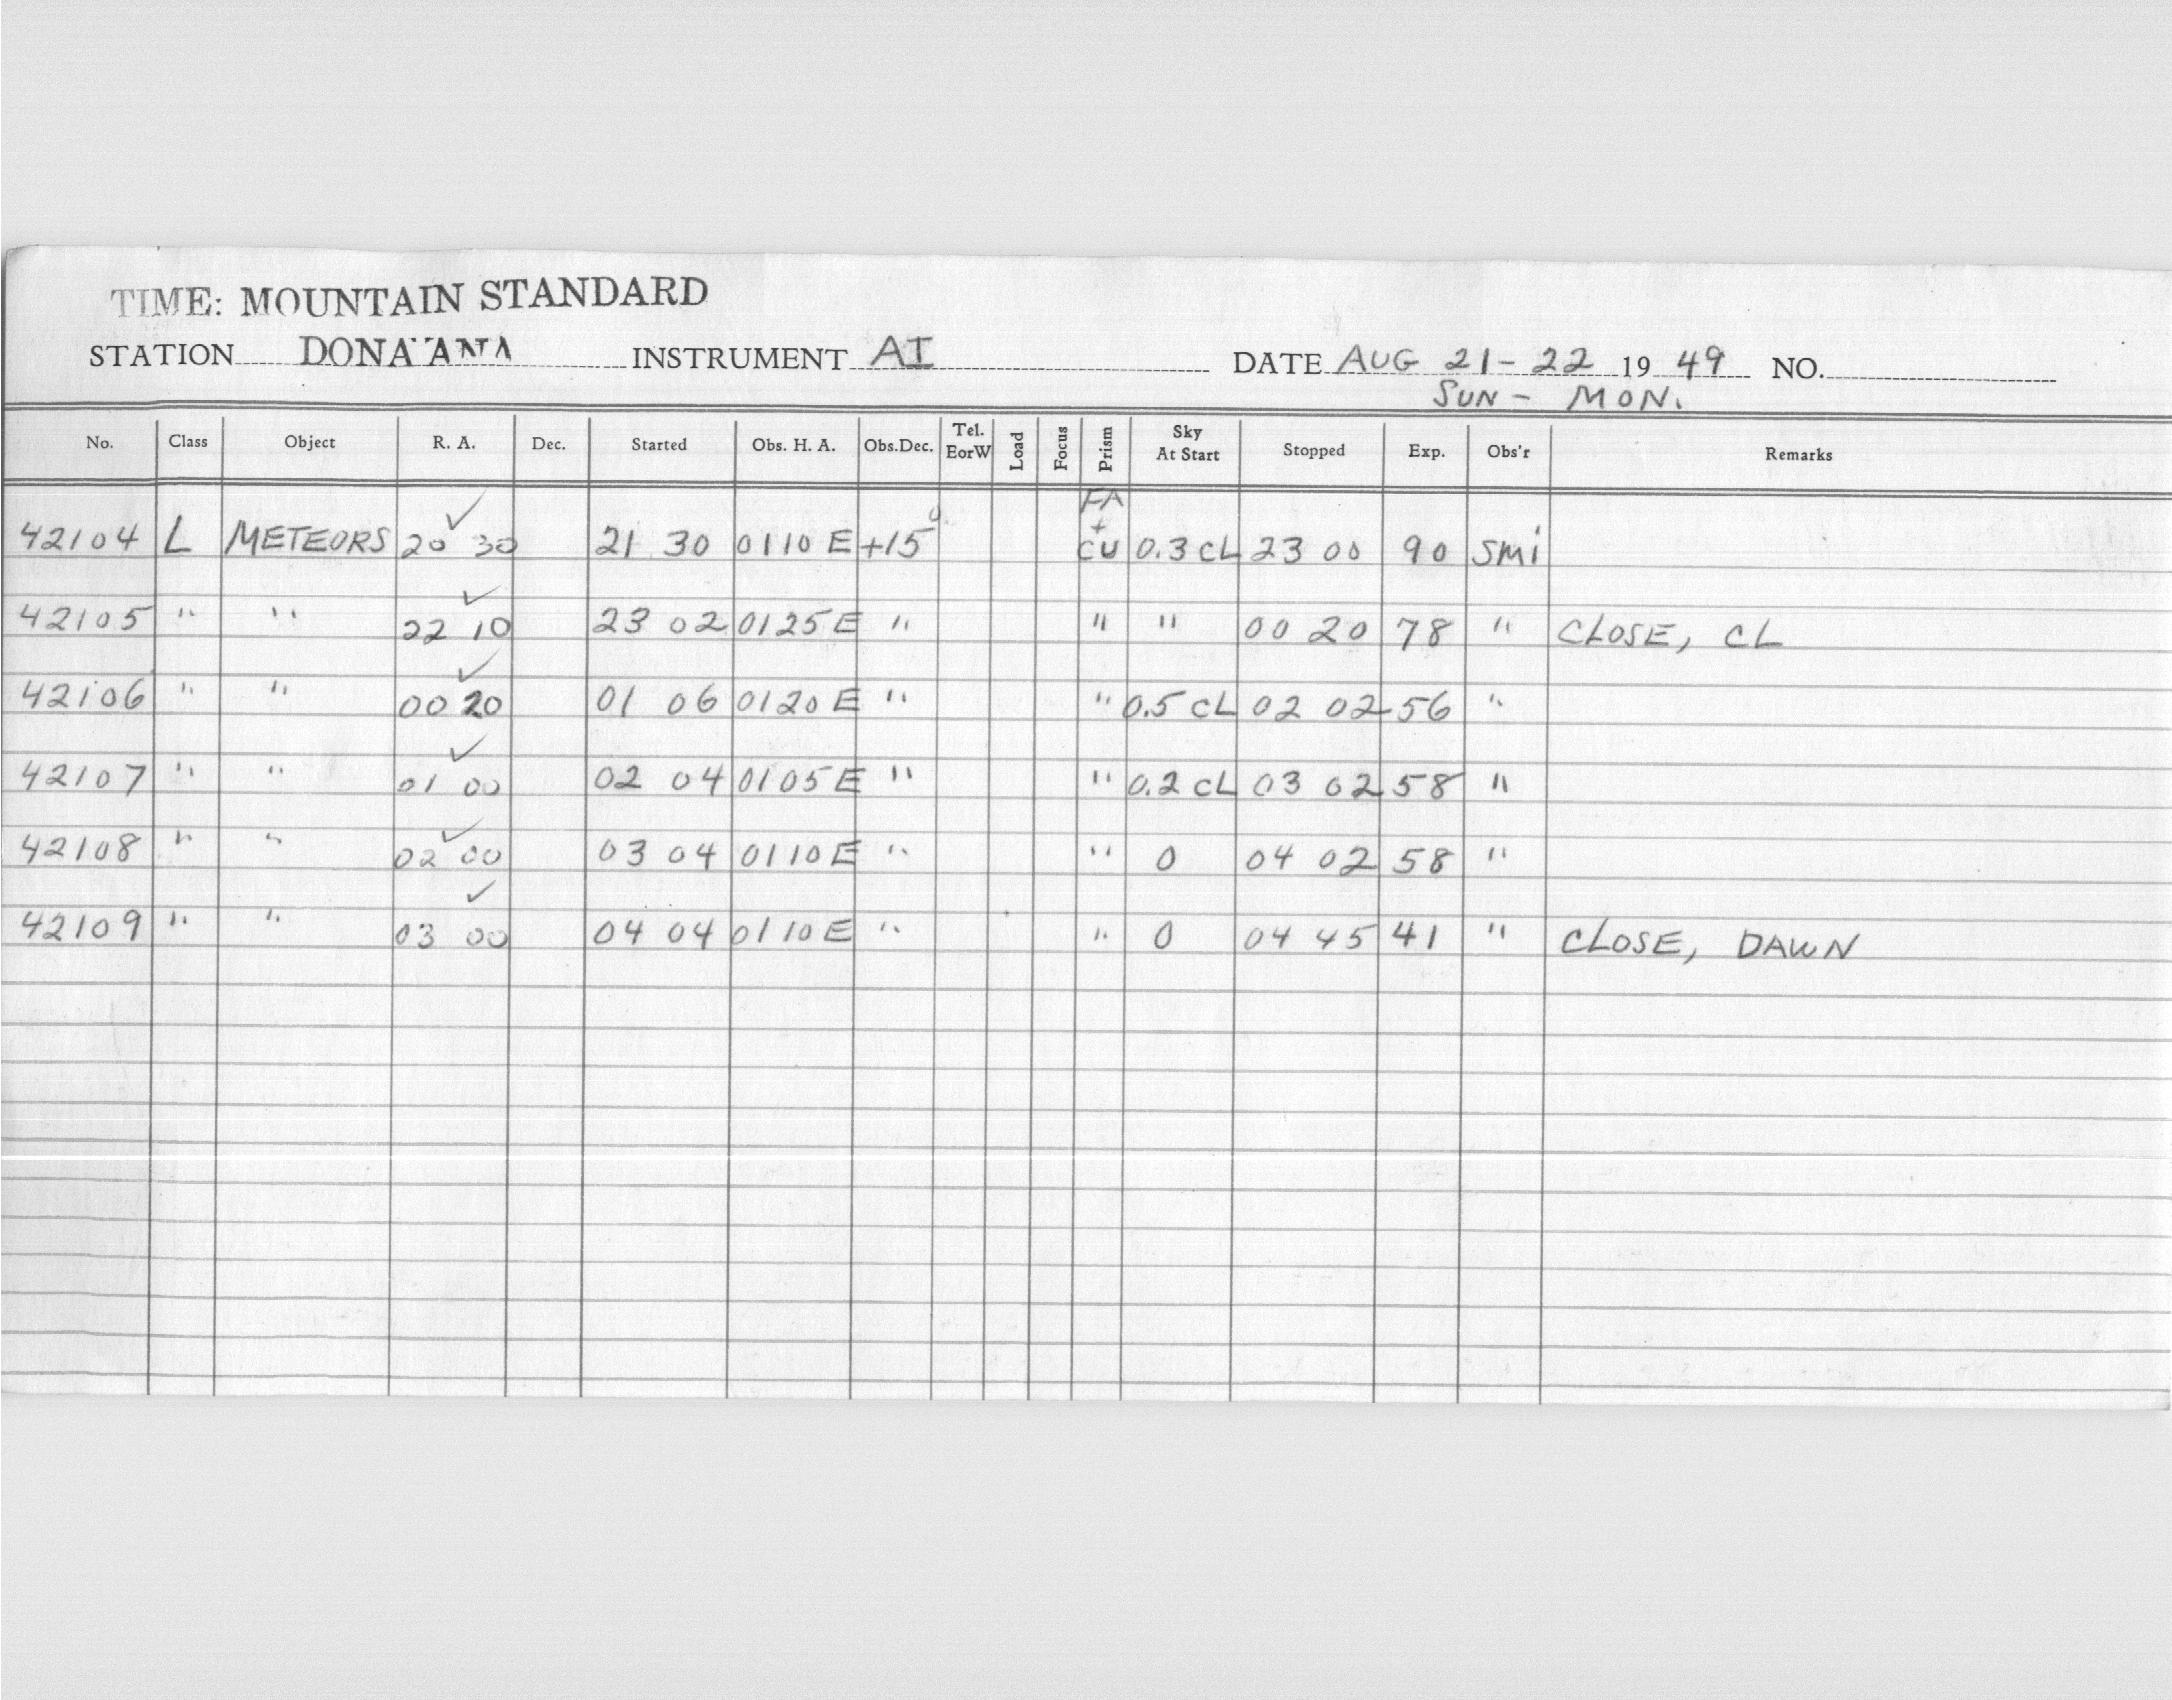 TIME: MOUNTAIN STANDARD
STATION DONA ANA INSTRUMENT AI DATE AUG 21-22 1949 NO.
SUN - MON.
No. Class Object R. A. Dec. Started Obs. H. A. Obs.Dec. Tel. EorW Load Focus Prism Sky At Start Stopped Exp. Obs'r Remarks
42104 L METEORS 20 30 21 30 0110 E +15° FA + CU 0.3 CL 23 00 90 SMi
42105 " " 22 10 23 02 0125 E " " " 00 20 78 " CLOSE, CL
42106 " " 00 20 01 06 0120 E " " 0.5 CL 02 02 56 "
42107 " " 01 00 02 04 0105 E " " 0.2 CL 03 02 58 "
42108 " " 02 00 03 04 0110 E " " 0 04 02 58 "
42109 " " 03 00 04 04 0110 E " " 0 04 45 41 " CLOSE, DAWN